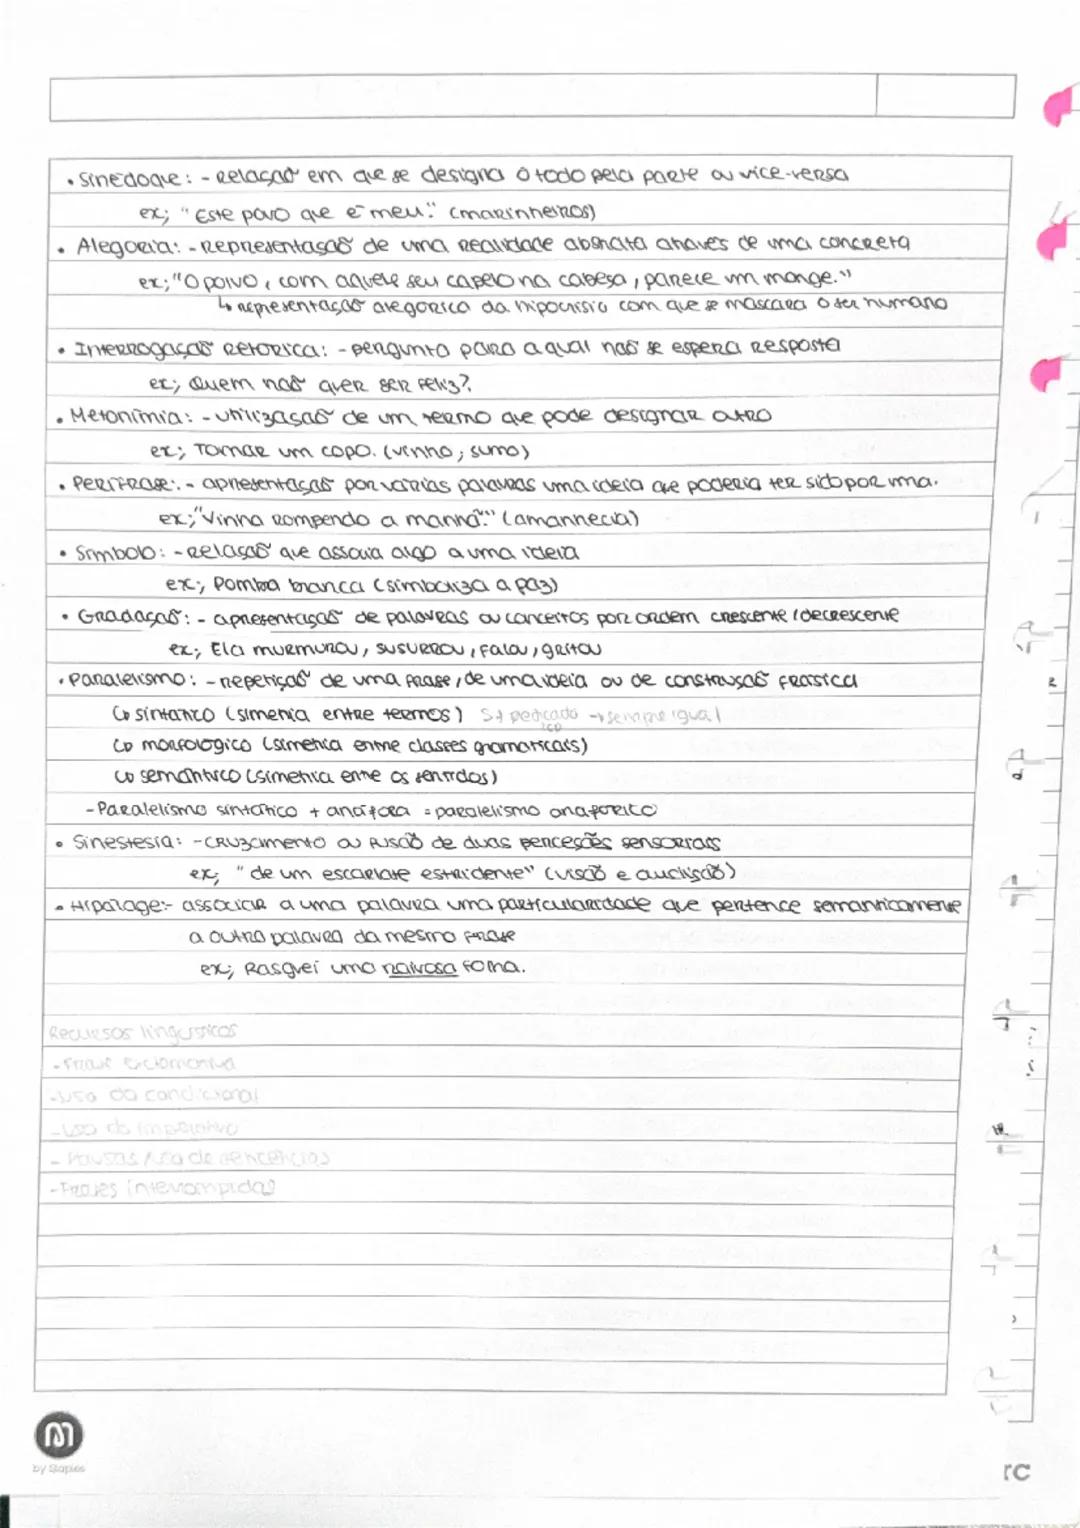 • Sinédoque: - Relação em que se designa o todo pela parte ou vice-versa
ex; "Este povo que é meu." (marinheiros)
• Alegoria: - Representação de uma realidade abstrata através de uma concreta
ex; "O polvo, com aquele seu capelo na cabeça, parece um monge."
↳ representação alegórica da hipocrisia com que se mascara o ser humano
• Interrogação retórica: - pergunta para a qual não se espera resposta
ex; Quem não quer ser feliz?
• Metonímia: - utilização de um termo que pode designar outro
ex; Tomar um copo. (vinho; sumo)
• Perífrase: - apresentação por várias palavras uma ideia que poderia ter sido por uma.
ex; "Vinha rompendo a manhã." (amanhecia)
• Símbolo: - Relação que associa algo a uma ideia
ex; Pomba branca (simboliza a paz)
• Gradação: - apresentação de palavras ou conceitos por ordem crescente/decrescente
ex; Ela murmurou, susurrou, falou, gritou
• Paralelismo: - repetição de uma frase, de uma ideia ou de construção frásica
↳ sintático (simetria entre termos) S+predicado → sempre igual
↳ morfológico (simetria entre classes gramaticais)
↳ semântico (simetria entre os sentidos)
- Paralelismo sintático + anáfora = paralelismo anafórico
• Sinestesia: - cruzamento ou fusão de duas perceções sensoriais
ex; "de um escarlate estridente" (visão e audição)
• Hipálage: - associar a uma palavra uma particularidade que pertence semanticamente
a outra palavra da mesma frase
ex; Rasguei uma raivosa folha.
Recursos linguísticos
- Frase exclamativa
- Uso do condicional
- Uso do imperativo
- Pausas / uso de reticências
- Frases interrompidas
by Staples
rc